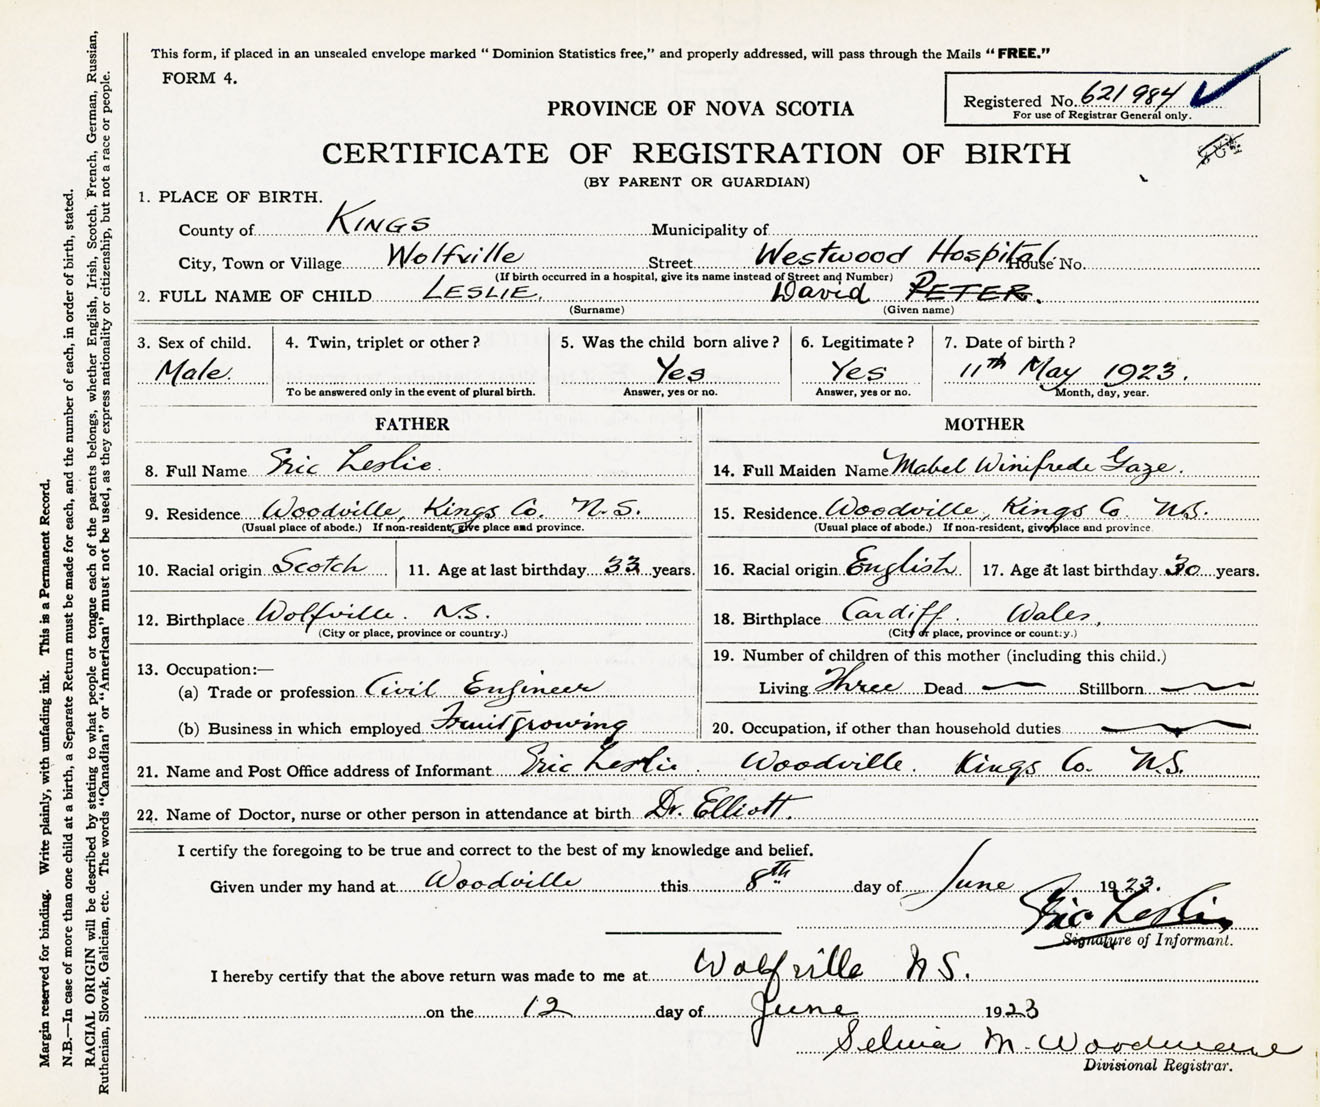 This form, if placed in an unsealed envelope marked " Dominion Statistics free," and properly addressed, will pass through the Mails "FREE."
FORM 4.
Registered No. 621984
For use of Registrar General only.
PROVINCE OF NOVA SCOTIA
CERTIFICATE OF REGISTRATION OF BIRTH
(BY PARENT OR GUARDIAN)
1. PLACE OF BIRTH.
County of KINGS Municipality of
City, Town or Village Wolfville Street Westwood Hospital. House No.
(If birth occurred in a hospital, give its name instead of Street and Number)
2. FULL NAME OF CHILD LESLIE. David PETER.
(Surname) (Given name)
3. Sex of child. 4. Twin, triplet or other? 5. Was the child born alive? 6. Legitimate? 7. Date of birth?
Male. Yes Yes 11th May 1923.
To be answered only in the event of plural birth. Answer, yes or no. Answer, yes or no. Month, day, year.
FATHER MOTHER
8. Full Name Eric Leslie. 14. Full Maiden Name Mabel Winifrede Gaze.
9. Residence Woodville, Kings Co. N.S. 15. Residence Woodville, Kings Co N.S.
(Usual place of abode.) If non-resident, give place and province. (Usual place of abode.) If non-resident, give place and province.
10. Racial origin Scotch 11. Age at last birthday 33 years. 16. Racial origin English 17. Age at last birthday 30 years.
12. Birthplace Wolfville. N.S. 18. Birthplace Cardiff. Wales,
(City or place, province or country.) (City or place, province or country.)
13. Occupation:— 19. Number of children of this mother (including this child.)
(a) Trade or profession Civil Engineer Living Three Dead — Stillborn —
(b) Business in which employed Fruitgrowing 20. Occupation, if other than household duties —
21. Name and Post Office address of Informant Eric Leslie. Woodville. Kings Co. N.S.
22. Name of Doctor, nurse or other person in attendance at birth Dr. Elliott.
I certify the foregoing to be true and correct to the best of my knowledge and belief.
Given under my hand at Woodville this 8th day of June 1923.
Eric Leslie
Signature of Informant.
I hereby certify that the above return was made to me at Wolfville N.S.
on the 12 day of June 1923
M. Woodman
Divisional Registrar.
Margin reserved for binding. Write plainly, with unfading ink. This is a Permanent Record.
N.B.—In case of more than one child at a birth, a Separate Return must be made for each, and the number of each, in order of birth, stated.
RACIAL ORIGIN will be described by stating to what people or tongue each of the parents belongs, whether English, Irish, Scotch, French, German, Russian,
Ruthenian, Slovak, Galician, etc. The words "Canadian" or "American" must not be used, as they express nationality or citizenship, but not a race or people.